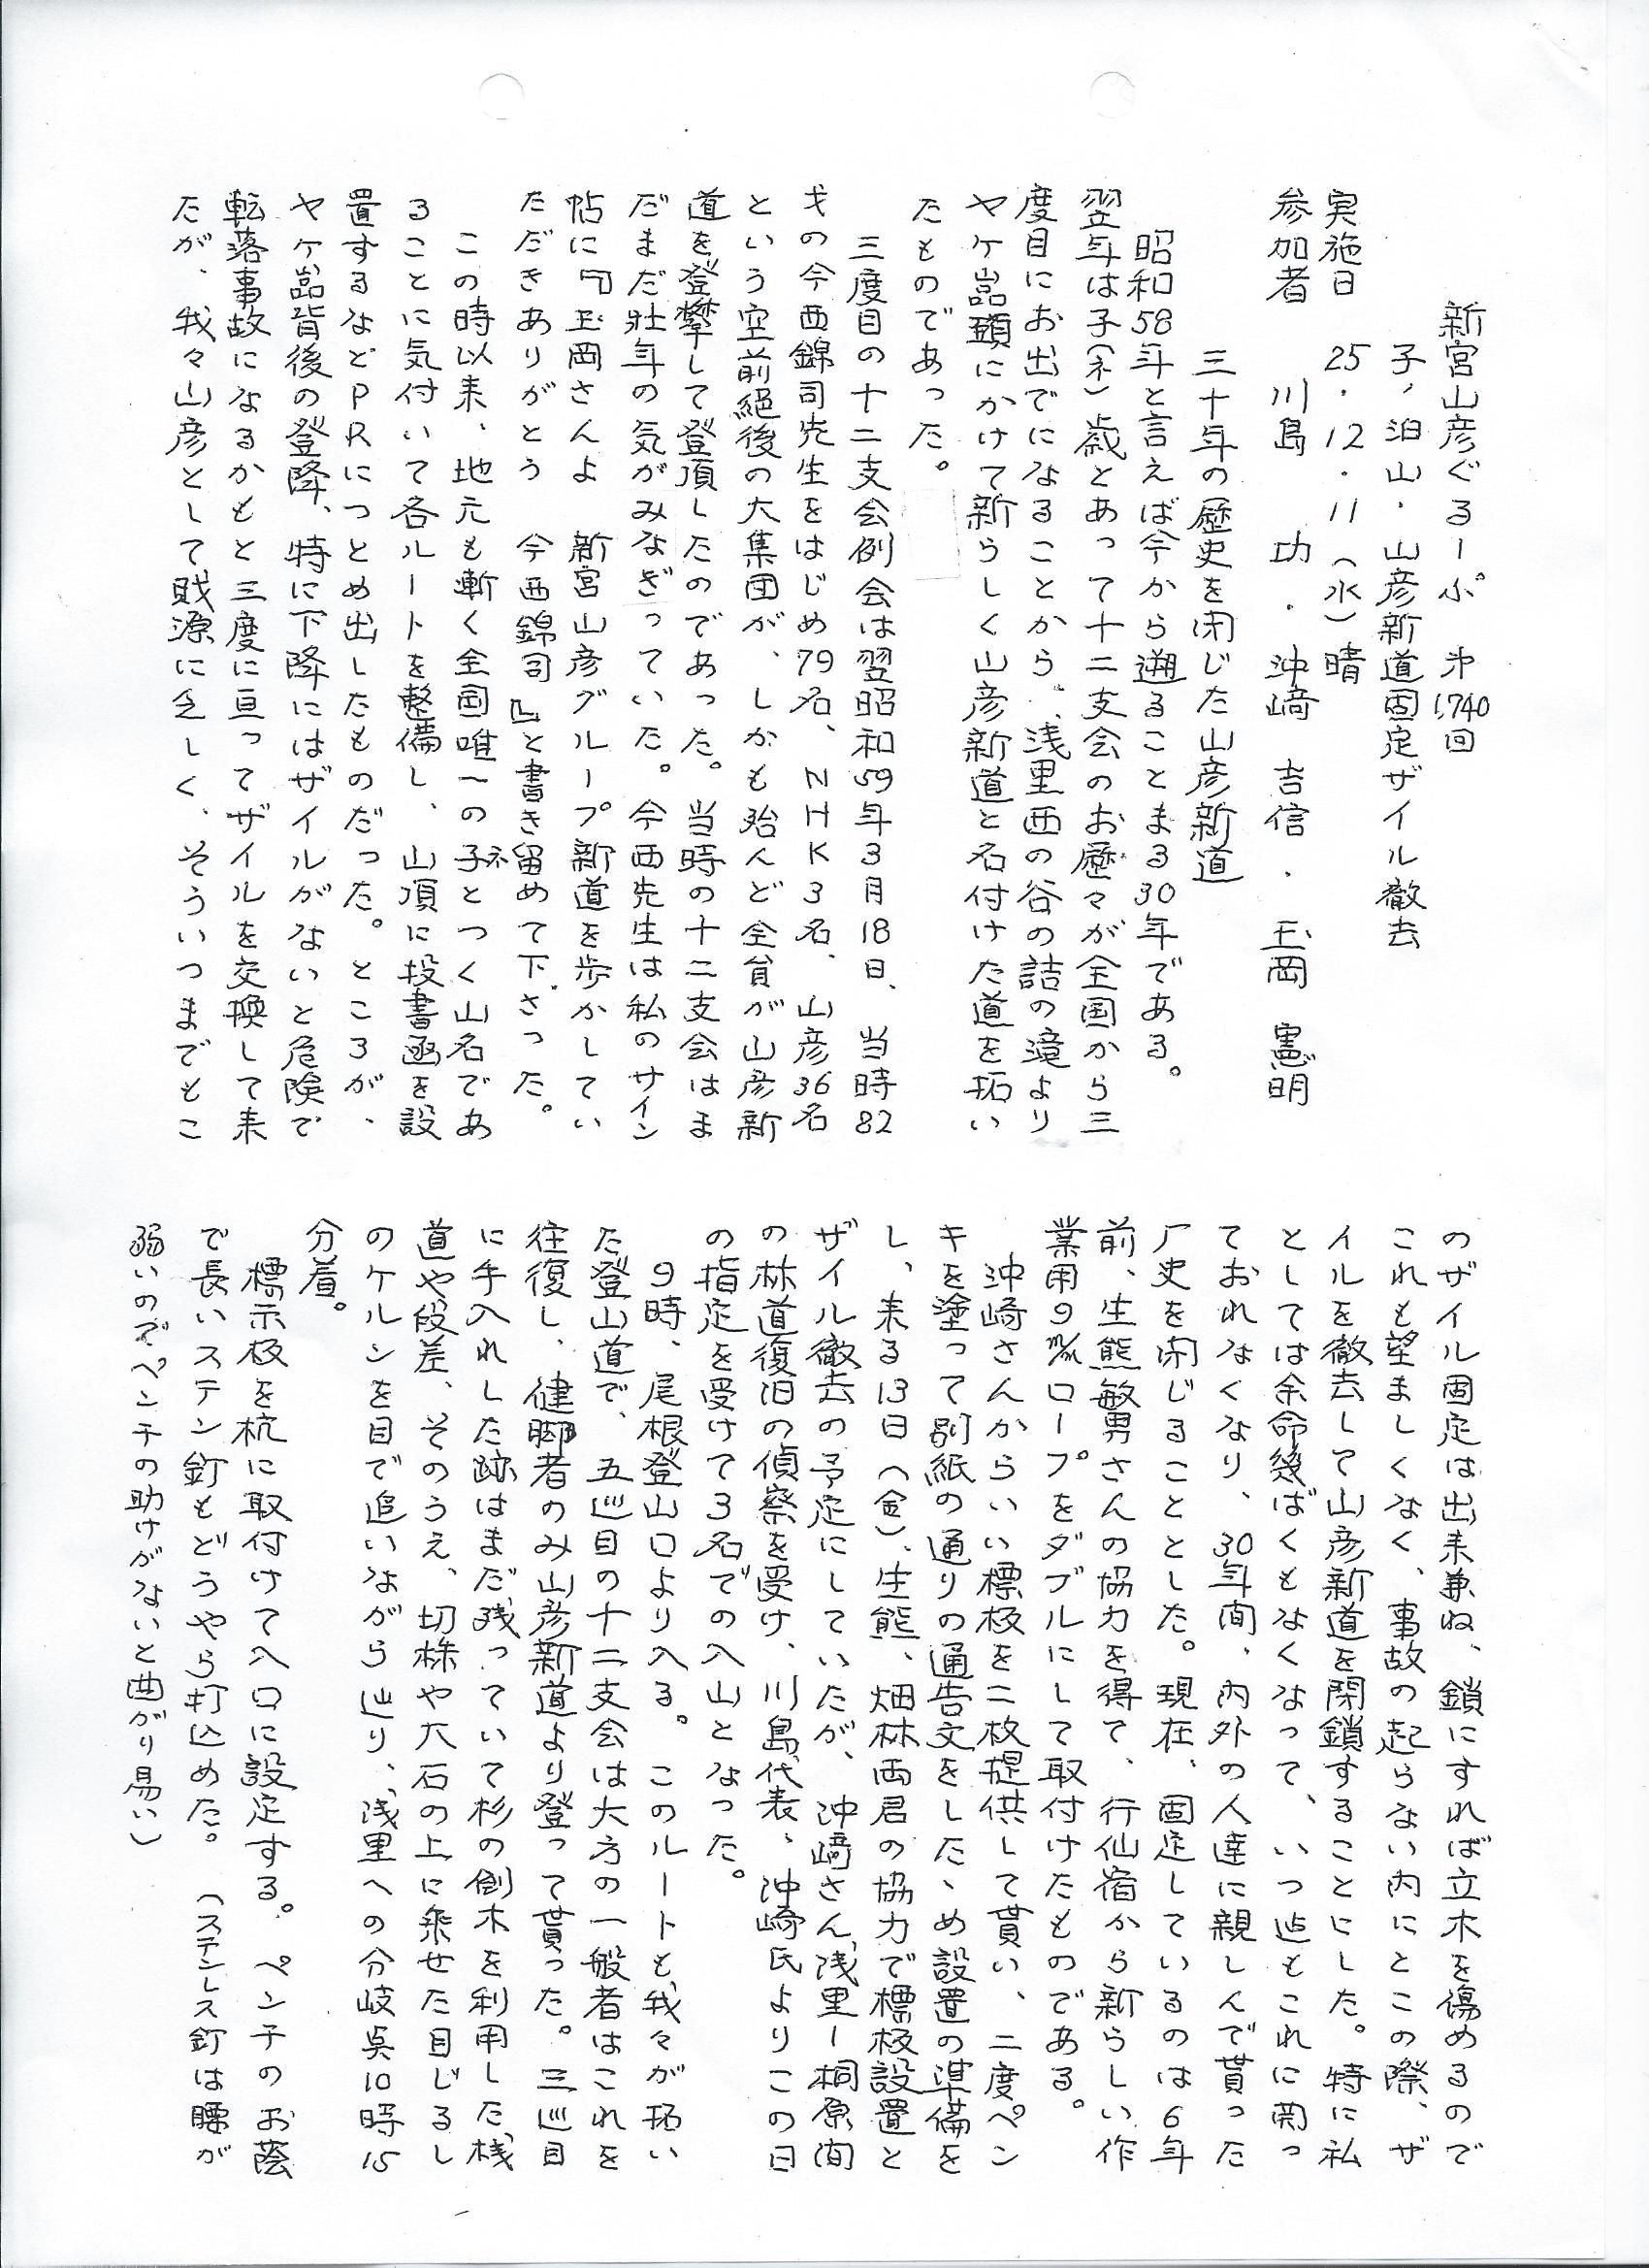 新宮山彦ぐるーぷ　第1,740回
子ノ泊山・山彦新道固定ザイル撤去
実施日　25・12・11（水）晴
参加者　川島　功・沖﨑　吉信・玉岡　憲明
三十年の歴史を閉じた山彦新道
昭和58年と言えば今から遡ることまる30年である。
翌年は子（ネ）歳とあって十二支会のお歴々が全国から三
度目にお出でになることから、浅里西の谷の詰の滝より
ヤケ嵓頭にかけて新らしく山彦新道と名付けた道を拓い
たものであった。
三度目の十二支会例会は翌昭和59年3月18日、当時82
才の今西錦司先生をはじめ79名、NHK3名、山彦36名
という空前絶後の大集団が、しかも殆んど全員が山彦新
道を登攀して登頂したのであった。当時の十二支会はま
だまだ壮年の気がみなぎっていた。今西先生は私のサイン
帖に『玉岡さんよ　新宮山彦グループ新道を歩かしてい
ただきありがとう　今西錦司』と書き留めて下さった。
この時以来、地元も漸く全国唯一の子（ネ）とつく山名であ
ることに気付いて各ルートを整備し、山頂に投書函を設
置するなどPRにつとめ出したものだった。ところが、
ヤケ嵓背後の登降、特に下降にはザイルがないと危険で
転落事故になるかもと三度に亘ってザイルを交換して来
たが、我々山彦として財源に乏しく、そういつまでもこ
のザイル固定は出来兼ね、鎖にすれば立木を傷めるので
これも望ましくなく、事故の起らない内にとこの際、ザ
イルを撤去して山彦新道を閉鎖することにした。特に私
としては余命幾ばくもなくなって、いつ迄もこれに関っ
ておれなくなり、30年間、内外の人達に親しんで貰った
厂史を閉じることとした。現在、固定しているのは6年
前、生熊敏男さんの協力を得て、行仙宿から新らしい作
業用9㍉ロープをダブルにして取付けたものである。
沖崎さんからいい標板を二枚提供して貰い、二度ペン
キを塗って別紙の通りの通告文をしたゝめ設置の準備を
し、来る13日（金）、生熊、畑林両君の協力で標板設置と
ザイル撤去の予定にしていたが、沖﨑さん、浅里ー桐原間
の林道復旧の偵察を受け、川島代表、沖崎氏よりこの日
の指定を受けて3名での入山となった。
9時、尾根登山口より入る。このルートも、我々が拓い
た登山道で、五巡目の十二支会は大方の一般者はこれを
往復し、健脚者のみ山彦新道より登って貰った。三巡目
に手入れした跡はまだ残っていて杉の倒木を利用した、桟
道や段差、そのうえ、切株や大石の上に乗せた目じるし
のケルンを目で追いながら辿り、浅里への分岐点10時15
分着。
標示板を杭に取付けて入口に設定する。ペンチのお蔭
で長いステン釘もどうやら打込めた。（ステンレス釘は腰が
弱いのでペンチの助けがないと曲がり易い）